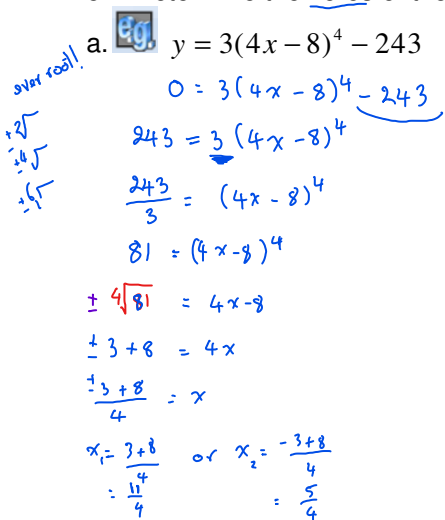 a. e.g. y = 3(4x – 8)⁴ – 243
even root!
±²√
±⁴√
±⁶√
0 = 3(4x - 8)⁴ - 243
243 = 3(4x-8)⁴
243/3 = (4x - 8)⁴
81 = (4x-8)⁴
± ⁴√81 = 4x-8
± 3 + 8 = 4x
(± 3 + 8)/4 = x
x₁ = (3+8)/4 or x₂ = (-3+8)/4
= 11/4 = 5/4